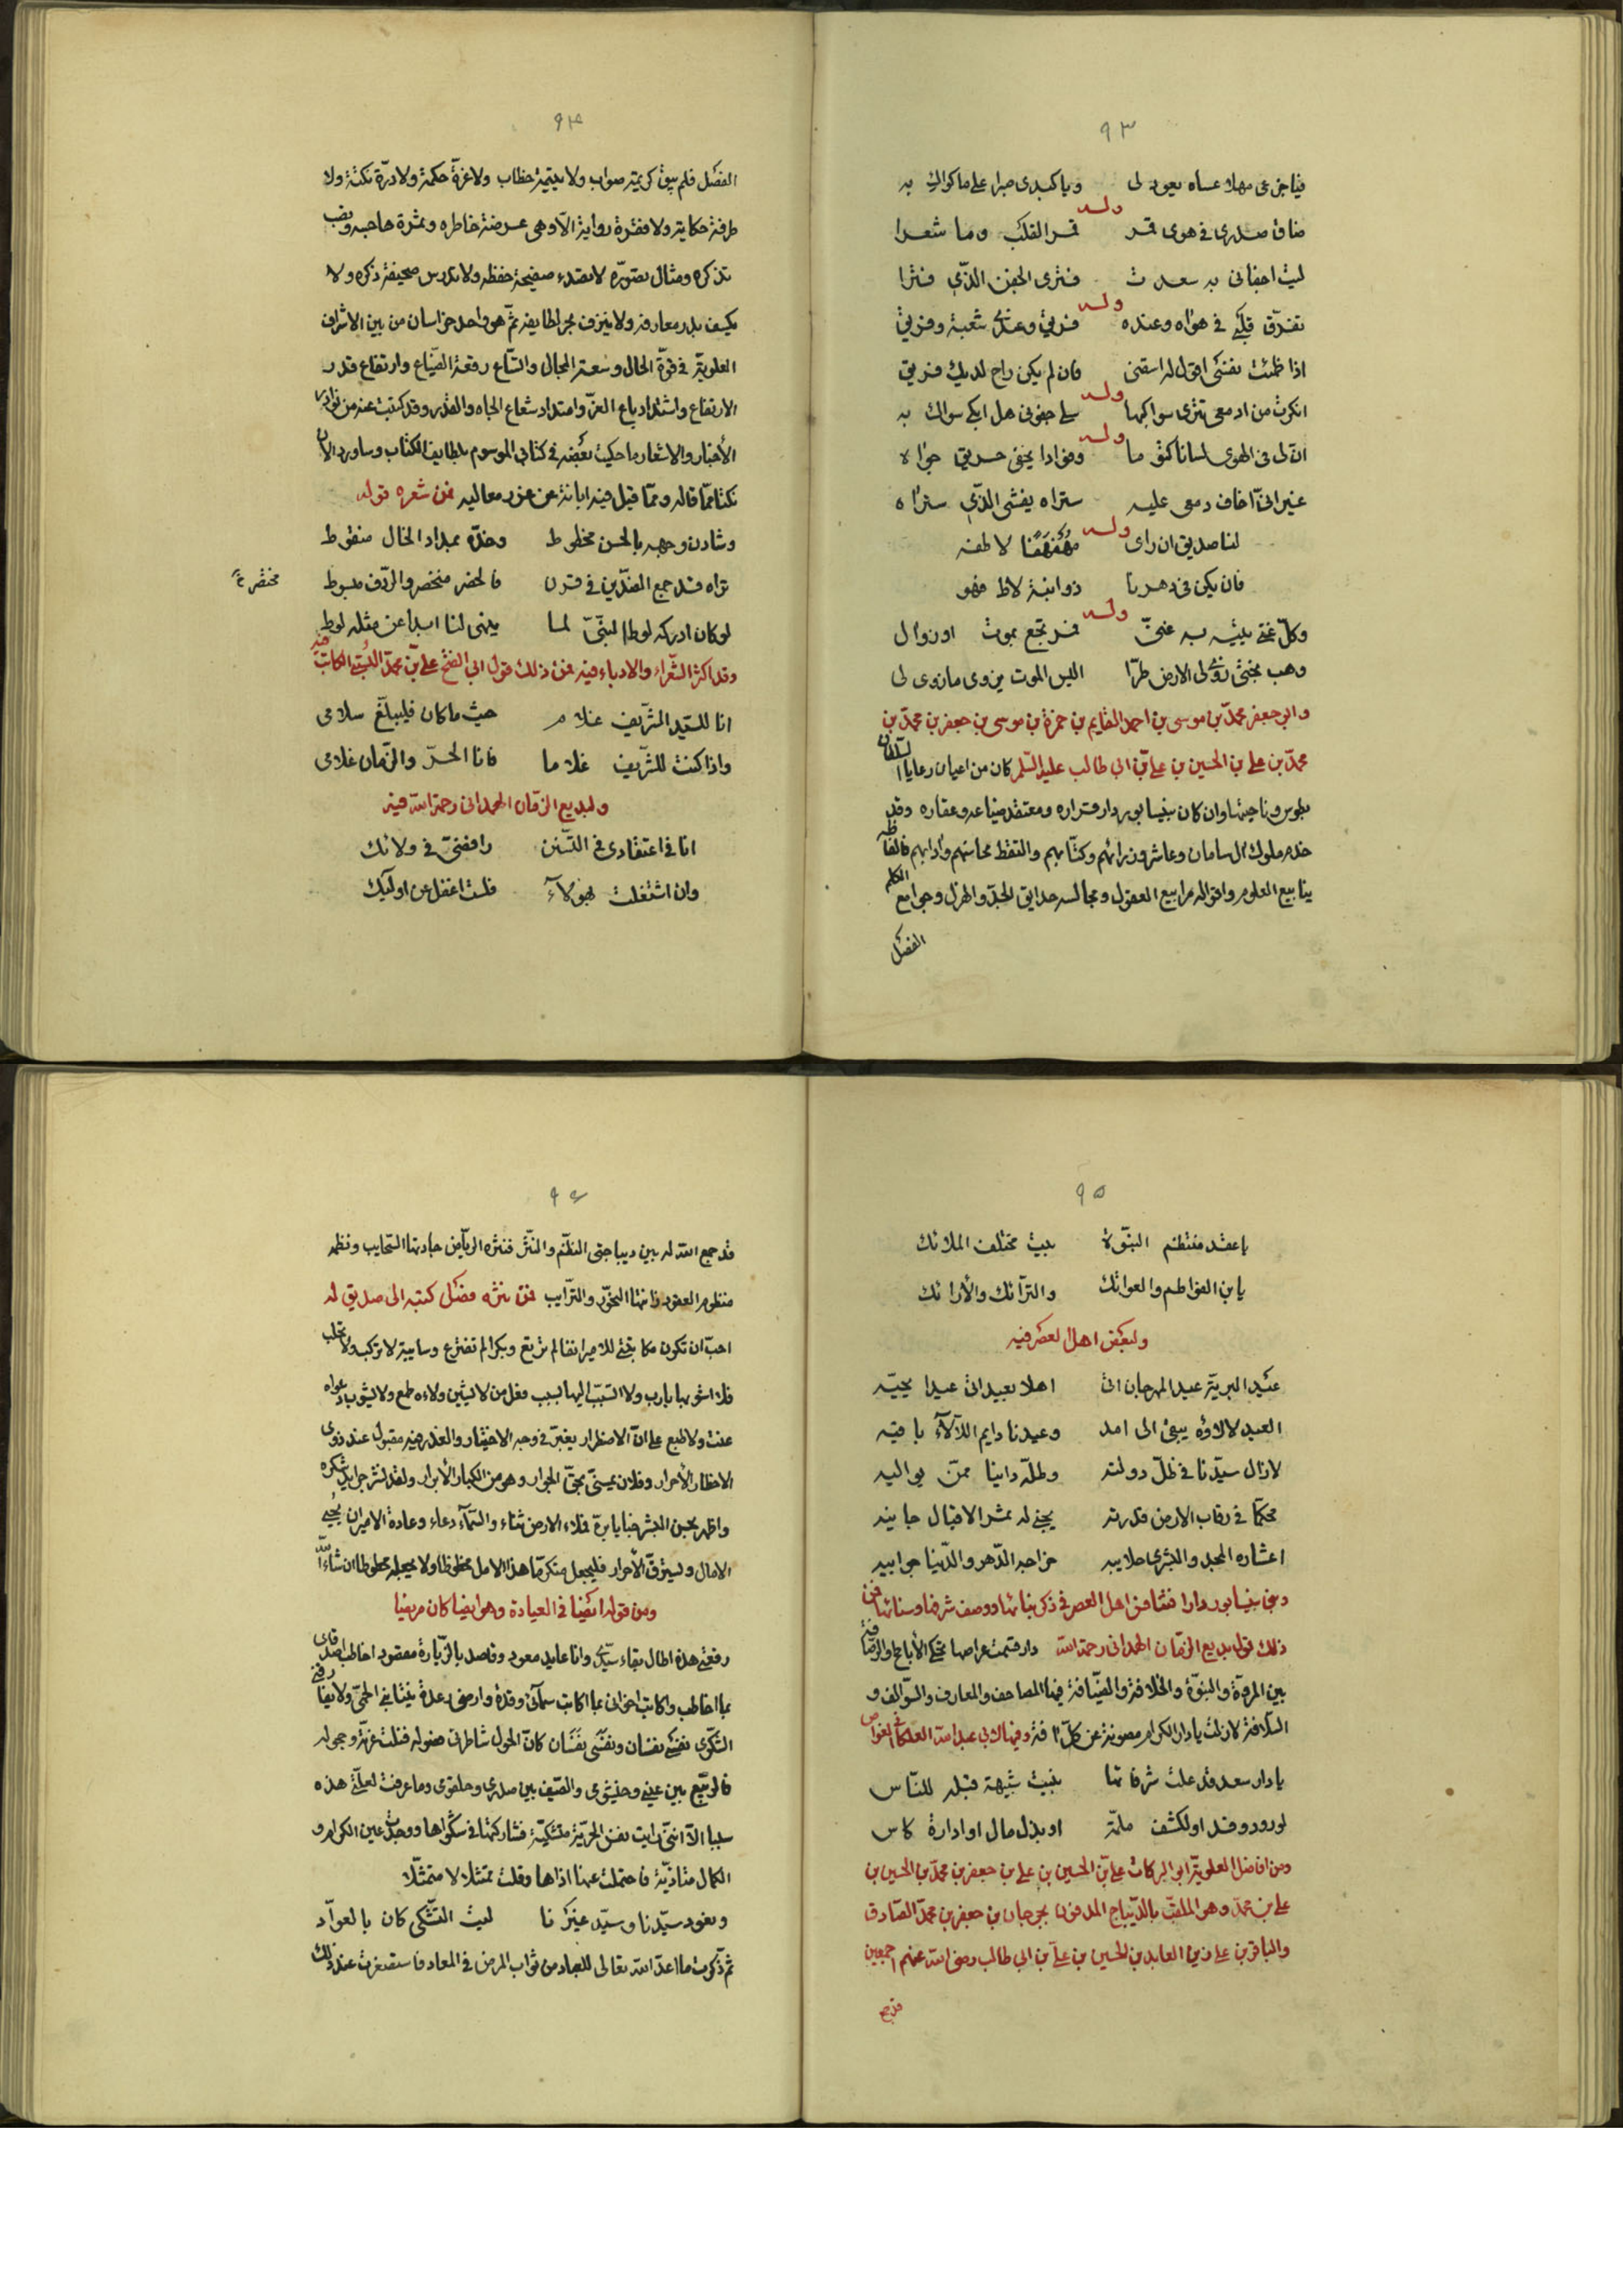 ٩٣
فيا جزعى مهلا عساه يعود لى ويا كبدى صبرا على ما كواك به
وله
ضاق صدرى فى هوى قمر قمر القلب وما شعرا
ليت اجفانى به سعدت فترى الجفن الذى فترا
وله
تفرق قلبى فى هواه وعنده فريق وعندى شعبة وفريق
اذا ظمئت نفسى اقول له اسقنى فان لم يكن راح لديك فريق
وله
انكرت من ادمعى تترى سواكبها سلى جفونى هل ابكى سواك به
وله
ان لى فى الهوى لسانا كتوما وفؤادا يخفى حريق جواه
غير انى اخاف دمعى عليه ستراه يفشى الذى ستراه
وله
لنا صديق ان راى مهفهفا لاطفه
فان يكن فى دهرنا ذو ابنة لاط فهو
وله
وكل غنى يتيه به غنى فمرتجع بموت او زوال
وهب جدى زوى لى الارض طرا اليس الموت يزوى ما زوى لى
وابو جعفر محمد بن موسى بن احمد القايم بن حمزة بن موسى بن جعفر بن محمد بن
محمد بن على بن الحسين بن على بن ابى طالب عليه السلم كان من اعيان رعايا السلطان
بطوس وناحيتها وان كان بنيسابور دار قراره ومعتقد ضياعه وعقاره وقد
خدم ملوك ال سامان وعاشر وزرائهم وكتابهم والتقط محاسنهم وآدابهم فالفاظه
ينابيع العلوم واقواله مرابيع العقول ومجالسه حدايق الجد والهزل وجوامع الكلم
الفضل
٩٤
الفضل فلم يبق كريمة صواب ولا يتيمة خطاب ولا غرة حكمة ولا درة نكتة ولا
طرفة حكاية ولا فقرة رواية الا وهى عرضة خاطره وثمرة هاجسه ونصب
تذكره ومثال تصوره لا تصدء صفيحة حفظه ولا تدرس صحيفة ذكره ولا
يكسف بدر معارفه ولا ينزف بحر لطايفه ثم هو واحد خراسان من بين الاشراف
العلوية فى قوة الحال وسعة المجال واتساع رقعة الضياع وارتفاع قدر
الارتفاع واشتداد باع العز وامتداد شعاع الجاه والقدر وقد كتبت عنه من نوادر
الأخبار والاشعار ما حكيت بعضه فى كتابى الموسوم بلطايف الكتاب وساورد الان
نكتا مما قاله ومما قيل فيه ابانة عن غرر معاليه فمن شعره قوله
وشادن وجهه بالحسن مخطوط وخده بمداد الخال منقوط
تراه قد جمع الضدين فى قرن فالخصر منخصر والردف مبسوط
مختصر خ
لو كان ادركه لوط النبى لما ينهى لنا ابدا عن مثله لوط
وقد اكثر الشعراء والادباء فيه فمن ذلك قول ابى الفتح على بن محمد البستى الكاتب فيه
انا للسيد الشريف غلام حيث ما كان فليبلغ سلامى
واذا كنت للشريف غلاما فانا الحر والزمان غلامى
ولبديع الزمان الهمدانى رحمة الله فيه
انا فى اعتقادى فى التسنن رافضى فى ولائك
وان اشتغلت بهؤلاء فلست اغفل عن اولئك
٩٥
يا عقد منتظم النبوة بيت مختلف الملائك
يا بن الفواطم والعواتك والترائك والأرائك
ولبعض اهل العصر فيه
عيد البرية عيد المهرجان اتى اهلا بعيد اتى عيدا يحييه
العيد لالاؤه يبقى الى امد وعيدنا دايم اللآلآء باقيه
لا زال سيدنا فى ظل دولته وظله دانيا ممن يواليه
محكما فى رقاب الارض قدرته يجنى له ثمر الاقبال جانيه
اعشاره المجد والبشرى جلابيبه خراجه الدهر والدنيا جوابيه
وبنى بنيسابور دارا فتنافس اهل العصر فى ذكر بنائها ووصف شرفها وسنائها فمن
ذلك قول بديع الزمان الهمدانى رحمة الله دار قسمت عراصها تحكى الأباطح والرصافة
بين المروة والنبوة والخلافة والضيافة فيها المصاحف والمعارف والسوالف و
السلافة لازلت يا دار الكرام مصونة عن كل آفة وفيها لابى عبد الله الغواص
يا دار سعد قد علت شرفاتها بنيت شبيهة قبلة للناس
لورود وفد او لكشف ملمة او بذل مال او ادارة كاس
ومن افاضل العلوية ابو البركات على بن الحسين بن على بن جعفر بن محمد بن الحسين بن
على بن محمد وهو الملقب بالديباج المدفون بجرجان بن جعفر بن محمد الصادق
والباقر بن على زين العابدين الحسين بن على بن ابى طالب رضى الله عنهم اجمعين
قد جمع
٩٦
قد جمع الله له بين ديباجتى النظم والنثر فنثره الرياض جادتها السحايب ونظمه
منظوم العقود زانتها النحور والترايب فمن نثره فصل كتبه الى صديق له
احب ان تكون مكاتبتى للامير انفا لم ترتع وبكرا لم تفترع وسايبة لا تركب ولا تحلب
فلا اشوبها بارب ولا اتسبب اليها بسبب فعل من لا يشين ولاءه طمع ولا يشوب دعواه
عنت ولا طبع على ان الاضطرار يغبر فى وجه الاختيار والعذر فيه مقبول عند ذوى
الاخطار الأحرار وفلان يمت بحق الجوار وهو من الكبار الأبرار ولقد نشر جرايد شكره
واظهر بحسن النشر خبايا بره فملاء الارض ثناء والسماء دعاء وعادة الامير ان يحيى
الامال ويسترق الأحرار فليجعل متكرما هذا الامل محظوظا ولا يجعله محطوطا ان شاء الله
ومن قوله ايضا فى العيادة وهو ايضا كان مريضا
رقعتى هذه اطال بقاء سيدى وانا عايد معود وقاصد بالزيارة مقصود اخاطب اصدقاى
بما اخاطب واكاتب اخوانى بما اكاتب سمآئى وقدة وارضى رعدة ينتابنى الحمى ولا يفارقنى
الشكوى نفسى نفسان ونفسى نفسان كان الحول شاطرنى فصوله فنلت غرته وحجوله
فالربيع بين عينى وخيشومى والصيف بين صدرى وحلقومى وما عرفت لعلتى هذه
سببا الا اننى رايت نفس الحرية متشكية فشاركتها فى شكواها ووجدت عين الكرام و
الكمال متاذية فاحتملت عنها اذاها وقلت متمثلا لا متمثلا
ونعود سيدنا وسيد غيرنا ليت التشكى كان بالعواد
ثم ذكرت ما اعد الله تعالى للعباد من ثواب المرض فى المعاد فاستصغرت عند ذلك